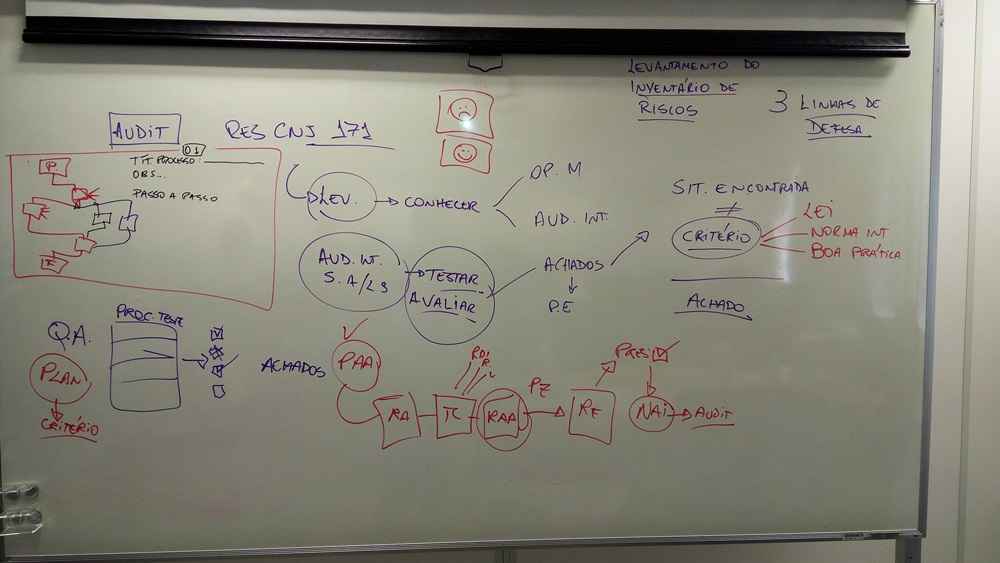 LEVANTAMENTO DO
INVENTÁRIO DE
RISCOS
3 LINHAS DE
DEFESA
AUDIT
RES CNJ 171
01
TÍT. PROCESSO:
OBS...
PASSO A PASSO
P.
LEV.
CONHECER
OP. M
AUD. INT.
SIT. ENCONTRADA
≠
CRITÉRIO
LEI
NORMA INT
BOA PRÁTICA
ACHADO
AUD. INT.
S. A/LS
TESTAR
AVALIAR
ACHADOS
P.E
Q.A.
PLAN
CRITÉRIO
PROC. TESTE
ACHADOS
PAA
RA
TC
RDI
R.
L
RAA
PZ
RF
PRESI
NAI
AUDIT